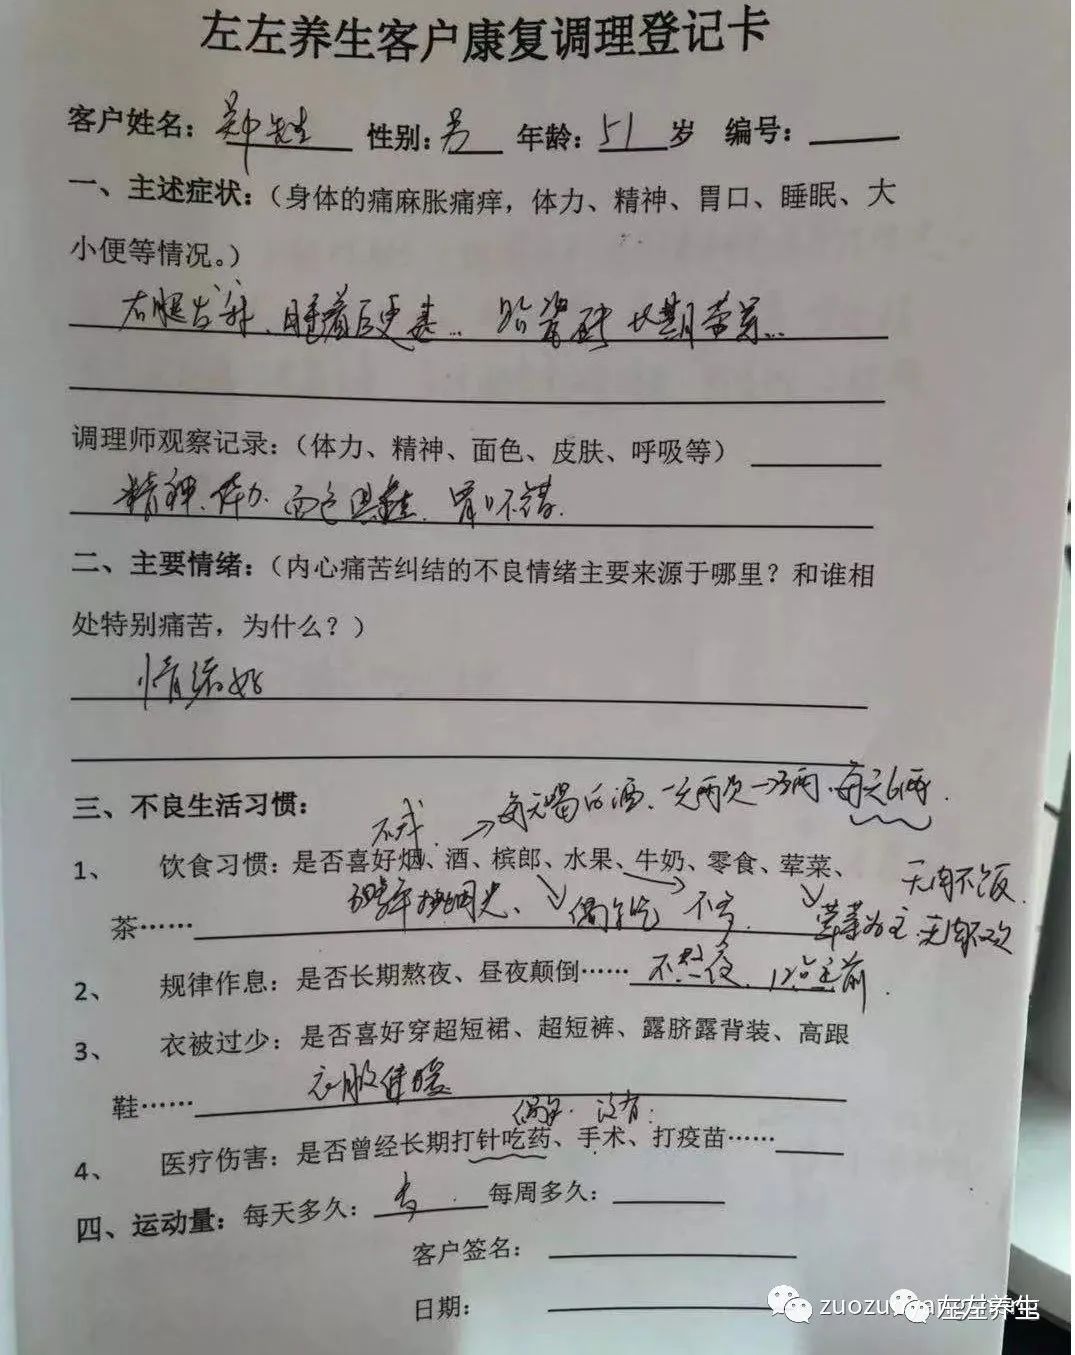 左左养生客户康复调理登记卡
客户姓名：郑先生 性别：男 年龄：51 岁 编号：
一、主述症状：（身体的痛麻胀痛痒，体力、精神、胃口、睡眠、大
小便等情况。）
右腿发麻、睡着后更甚… 贴瓷砖 长期劳累…
调理师观察记录：（体力、精神、面色、皮肤、呼吸等）
精神、体力、面色俱佳、胃口不错.
二、主要情绪：（内心痛苦纠结的不良情绪主要来源于哪里？和谁相
处特别痛苦，为什么？）
情绪好
三、不良生活习惯：
不戒 → 每天喝白酒、一天两次一次3两、每天6两.
1、 饮食习惯：是否喜好烟、酒、槟郎、水果、牛奶、零食、荤菜、
无肉不饭.
茶……
偶尔吃 不多. 荤菜为主.无肉不欢
2、 规律作息：是否长期熬夜、昼夜颠倒…… 不熬夜、12点之前.
3、 衣被过少：是否喜好穿超短裙、超短裤、露脐露背装、高跟
鞋…… 衣服保暖
偶尔. 没有.
4、 医疗伤害：是否曾经长期打针吃药、手术、打疫苗……
四、运动量：每天多久： 每周多久：
客户签名：
日期：
左左养生